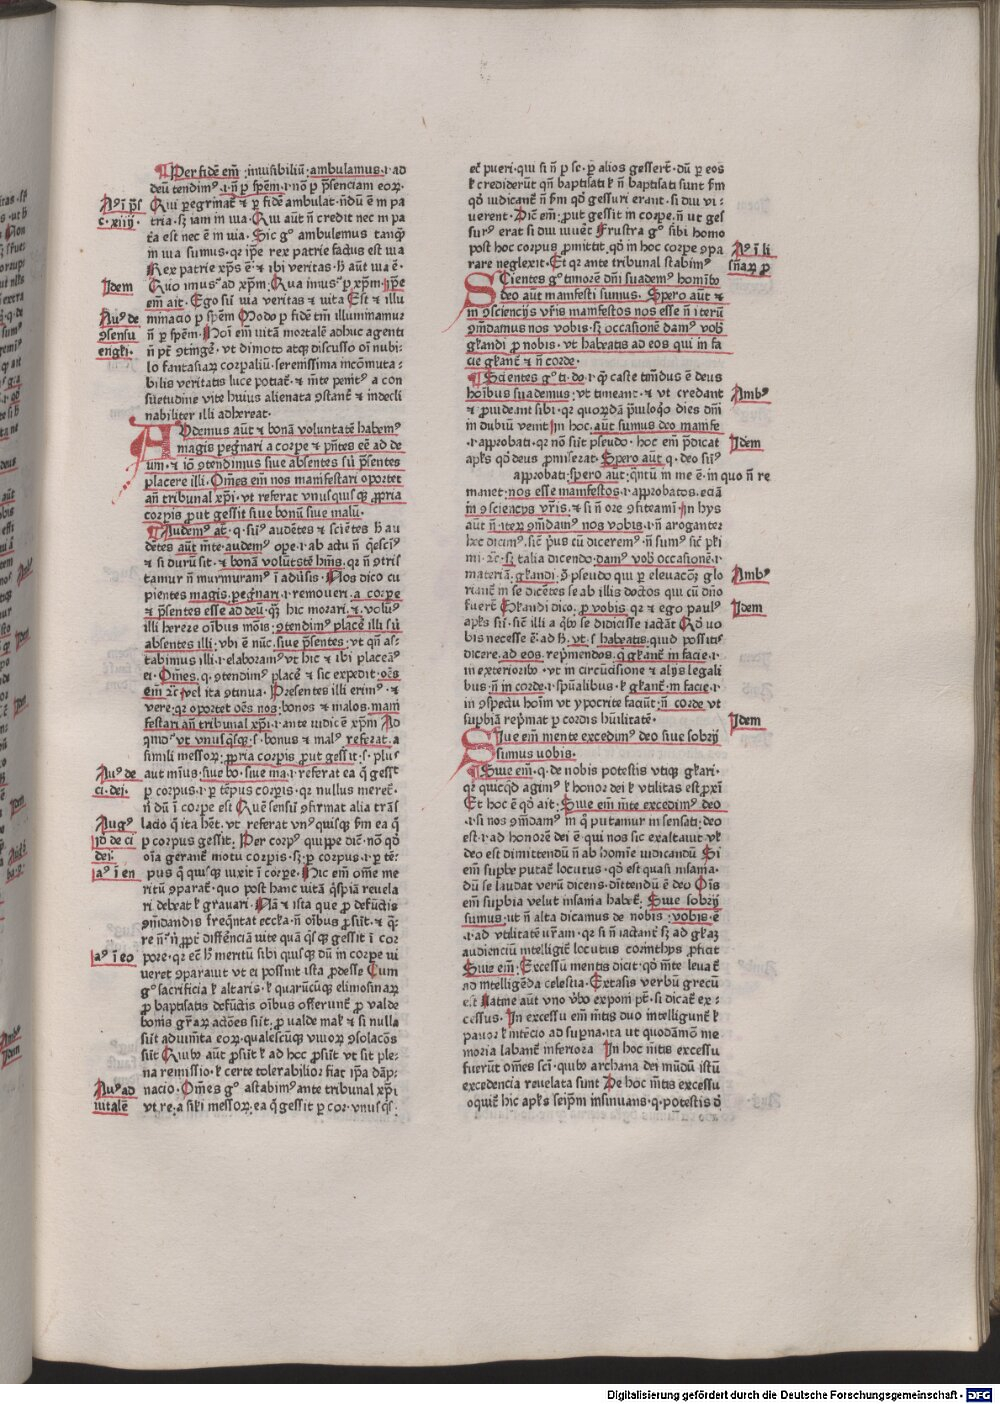 ¶Per fidē em̄ ; inuisibiliū ; ambulamus ·i· ad
deū tendimꝰ ·i· n̄ p̱ sp̄em ·i· nō p̱ p̄senciam eoꝝ·
Qui p̱egrinat̄ ⁊ p̱ fidē ambulat · n̄dū ē in pa
tria · sꝫ iam in uia · Qui aūt n̄ credit nec in pa
t̄a est nec ē in uia · Sic gͦ ambulemus tanqͣ̄
in uia sumus · qꝛ ip̄e rex patrie factus est uia
Rex patrie xp̄s ē · ⁊ ibi veritas · h̄ aūt uia ē ·
Quo imusˀ ad xp̄m · Qua imusˀ p̱ xp̄m · ip̄e
em̄ ait · Ego sū uia veritas ⁊ uita Est ⁊ illu
minacio p̱ sp̄em Modo p̱ fidē tm̄ illuminamur
n̄ p̱ sp̄em · Noī em̄ uitā mortalē adhuc agenti
n̄ pt̄ ꝯtinge̅ · vt dimoto atqꝫ discusso oī nubi⸗
lo fantasiaꝝ corpaliū · serenissima incōmuta⸗
bilis veritatis luce potiat̄ · ⁊ mēte penitꝰ a con
sūetudine vite huius alienata ꝯstant̄ ⁊ indecli
nabiliter illi adhereat ·
AUdemus aūt ⁊ bonā voluntatē habemꝰ
magis peg̱nari a corpe ⁊ p̄ntes eē ad de
um · ⁊ iō ꝯtendimus siue absentes siū p̄sentes
placere illi · Om̄es em̄ nos manifestari oportet
an̄ tribunal xp̄i · vt referat vnusquisqꝫ ꝓpria
corpis prout gessit siue bonū siue malū ·
¶Audemꝰ at̄ · q · sūꝰ audētes ⁊ sciētes h̄ au
dētes aūt mēte · audemꝰ ope ·i· ab actu n̄ q̄sciꝰ
⁊ si durū sit · ⁊ bonā volūtatē hm̄s · qꝛ n̄ ꝯtris
tamur n̄ murmuramꝰ ī adūsis · Nos dico cu
pientes magis peg̱nari ·i· remoueri · a corpe
⁊ p̄sentes esse ad deū · qꝫ hic morari · ⁊ volūꝰ
illi hereze oībus mōis · ꝯtendimꝰ placē illi siū
absentes illi · vbi ē nūc · siue p̄sentes · vt qn̄ as⸗
tabimus illi ·i· elaboramꝰ vt hic ⁊ ibi placeāꝰ
ei · Om̄es · q · ꝯtendimꝰ placē ⁊ sic expedit · oēs
em̄ ⁊c̄ · vel ita ꝯtinua · Presentes illi erimꝰ · ⁊
vere · qꝛ oportet oēs nos · bonos ⁊ malos · mani
festari an̄ tribunal xp̄i ·i· ante iudicē xp̄m Ad
quidˀ vt vnusq̄sqꝫ ·s· bonus ⁊ malꝰ · referat · a
simili messoꝝ · ꝓpria corpis prout gessit ·s· plusˀ
aut minus · siue bo · siue ma ·i· referat ea q̄ gessit
p̱ corpus ·i· p̱ tēpus corpis · qꝛ nullus meret̄ ·
n̄ dū ī corpe est Quē sensū ꝯfirmat alia trās
lacio q̄ ita het̄ · vt referat vnꝰ quisqꝫ s̄m ea q̄
p̱ corpus gessit · Per corpꝰ quippe dic̄ · nō qd̄
oīa gerant̄ motu corpis · sꝫ p̱ corpus ·i· p̱ tē⸗
pus q̄ quisqꝫ uixit ī corpe · Hic em̄ om̄e me
ritū ꝯparat̄ · quo post hanc uitā q̄spiā releua
ri debeat ł grauari · Nā ⁊ ista que pro defūctis
ꝯmdandis freq̄ntat eccl̄ia · n̄ oībus ꝓsūt · ⁊ q̄⸗
re n̄ˀ n̄ ꝓpt̄ diffēnciā uite quā q̄sqꝫ gessit ī cor
pore · qꝛ eē h̄ meritū sibi quisqꝫ dū in corpe ui
ueret ꝯparauit vt ei possint ista pdesse Cum
gͦ sacrificia ł altaris · ł quarūcūqꝫ elimosinaꝝ
ꝓ baptisatis defūctis oībus offerunt̄ · ꝓ valde
bonis gr̄aꝝ actōes sūt · ꝓ valde mal̄ ⁊ si nulla
sūt adiumēta eoꝝ · qualescūqꝫ viuoꝝ ꝯsolacōes
sūt Quibꝫ aūt ꝓsūt ł ad hoc ꝓsūt vt sit ple⸗
na remissio · ł certe tolerabilior fiat ip̄a dāp⸗
nacio · Om̄es gͦ astabimꝰ ante tribunal xp̄i
vt re · a sil̄i messoꝝ · ea q̄ gessit p̱ cor · vnusq̄sꝫ
Aꝰ ī ps̄
c · xiiij ·
Idem
Auꝰ de
ꝯsensu
engl̄i ·
Auꝰ de
ci · dei ·
Augꝰ
jd de ci
dei ·
aꝰ ī en
aꝰ ī eo
Auꝰ ad
uitalē
et̄ pueri · qui si n̄ p̱ se · p̱ alios gessert̄ · dū p̱ eos
ł crediderūt qn̄ baptisati ł n̄ baptisati sunt s̄m
qd̄ iudicant̄ n̄ s̄m qd̄ gesturi erant · si diu vi⸗
uerent · Dic̄ em̄ · prout gessit in corpe · n̄ ut ges
surꝰ erat si diu uiuēt Frustra gͦ sibi homo
post hoc corpus ꝓmittat · qd̄ in hoc corpe ꝯpa
rare neglexit · Et qꝛ ante tribunal stabimꝰ
SCientes gͦ timorē dn̄i suademꝰ homībꝫ
deo aūt manifesti sumus · Spero aūt ⁊
in ꝯsciencijs vr̄is manifestos nos esse n̄ iterū
ꝯmdamus nos vobis · sꝫ occasionē damꝰ vobꝫ
gl̄iandi ꝓ nobis · vt habeatis ad eos qui in fa
cie gl̄iant̄ ⁊ n̄ corde ·
¶Scientes gͦ ti · do · ·i· qꝫ caste timēdus ē deus
hoībus suademus · vt timeant · ⁊ vt credant
⁊ ꝓuideant sibi · qꝛ quordā piuiloqͦ dies dn̄i
in dubiū veint In hoc · aūt sumus deo manife
·i· approbati · qꝛ nō sūt pseudo · hoc em̄ p̄dicat
apl̄s qd̄ deus ꝓmiserat · Spero aūt · q · deo sūꝰ
approbati · spero aut · qn̄tū in me ē · in quo n̄ re
manet · nos esse manifestos ·i· approbatos · eciā
in ꝯsciencijs vr̄is · ⁊ si n̄ ore ꝯfiteamī In hijs
aūt n̄ iterꝝ ꝯmdamꝰ nos vobis ·i· n̄ aroganter
hec dicimꝰ · sic̄ p̄us cū dicerem̄ · n̄ sumꝰ sic̄ pl̄i
mi · ⁊c̄ · sꝫ talia dicendo · damꝰ vobꝫ occasionē ·i·
materiā · gl̄iandi · ꝯ̄ pseudo qui p̱ eleuacōꝫ glo
riant̄ in se dicētes se ab illis doctos qui cū dn̄o
fuert̄ Gl̄iandi dico · ꝓ vobis · qꝛ ⁊ ego paulꝰ
apl̄s sū · sic̄ illi a qͥbꝫ se didicisse iactāt̄ Qd̄ uo
bis necesse ē · ad h̄ · vt ·s· habeatis · quid possitis
dicere · ad eos · rep̄mendos · q̄ gl̄iant̄ in facie ·i·
in exterioribꝫ · vt in circūcisione ⁊ alijs legali
bus · n̄ in corde ·i· sp̄ualibus · ł gl̄iant̄ in facie ·i·
in ꝯspectu hoīm vt ypocrite faciūt · n̄ corde vt
supbia rep̄mat̄ p̱ cordis hūilitatē ·
SIue em̄ mente excedimꝰ deo siue sobrij
sumus uobis ·
¶Siue em̄ · q · de nobis potestis vtiqꝫ gl̄iari ·
qꝛ quicqd̄ agimꝰ ł honor dei ł vtilitas est ꝓxī
Et hoc ē qd̄ ait · Siue em̄ mēte excedimꝰ deo
·i· si nos ꝯmdamꝰ in q̄ putamur insensati · deo
est ·i· ad honorē dei ē qui nos sic exaltauit vl̄
deo est dimittendū n̄ ab homīe iudicandū Si
em̄ supbe putat̄ locutus · qd̄ est quasi insania ·
dū se laudat verū dicens · dimittendū ē deo Oīs
em̄ supbia velut insania habet̄ · Siue sobrij
sumus · ut n̄ alta dicamus de nobis · vobis · ē
·i· ad vtilitatē ur̄am · qꝛ si n̄ iactant̄ sꝫ ad gl̄iaꝫ
audienciū intelligit̄ locutus corinthijs ꝓficit
Siue em̄ · Excessū mentis dicit · qd̄ mēte leuat̄
ad intelligēda celestia · Extasis verbū grecū
est Latine aūt vno v̄bo exponi pt̄ · si dicat̄ ex⸗
cessus · In excessu em̄ mētis duo intelligunt̄ ł
pauor ł intēcio ad supna · ita ut quodāmō me
moria labant̄ inferiora In hoc mētis excessu
fuerūt om̄es scī · quibꝫ archana dei mūdū istū
excedencia reuelata sunt De hoc mētis excessu
loquit̄ hic apl̄s seip̄m insinuans · q · potestis đ
Aꝰ ī li
sn̄aꝝ p̱
Ambꝰ
Idem
Ambꝰ
Idem
Idem
Digitalisierung gefördert durch die Deutsche Forschungsgemeinschaft - DFG